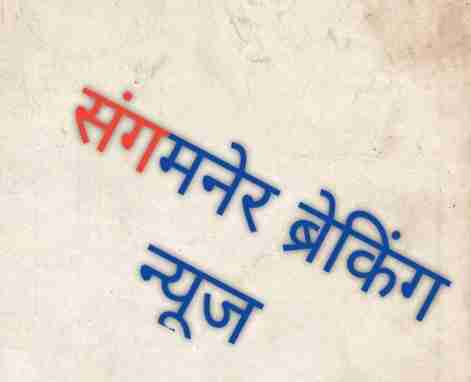 संगमनेर ब्रेकिंग
न्यूज